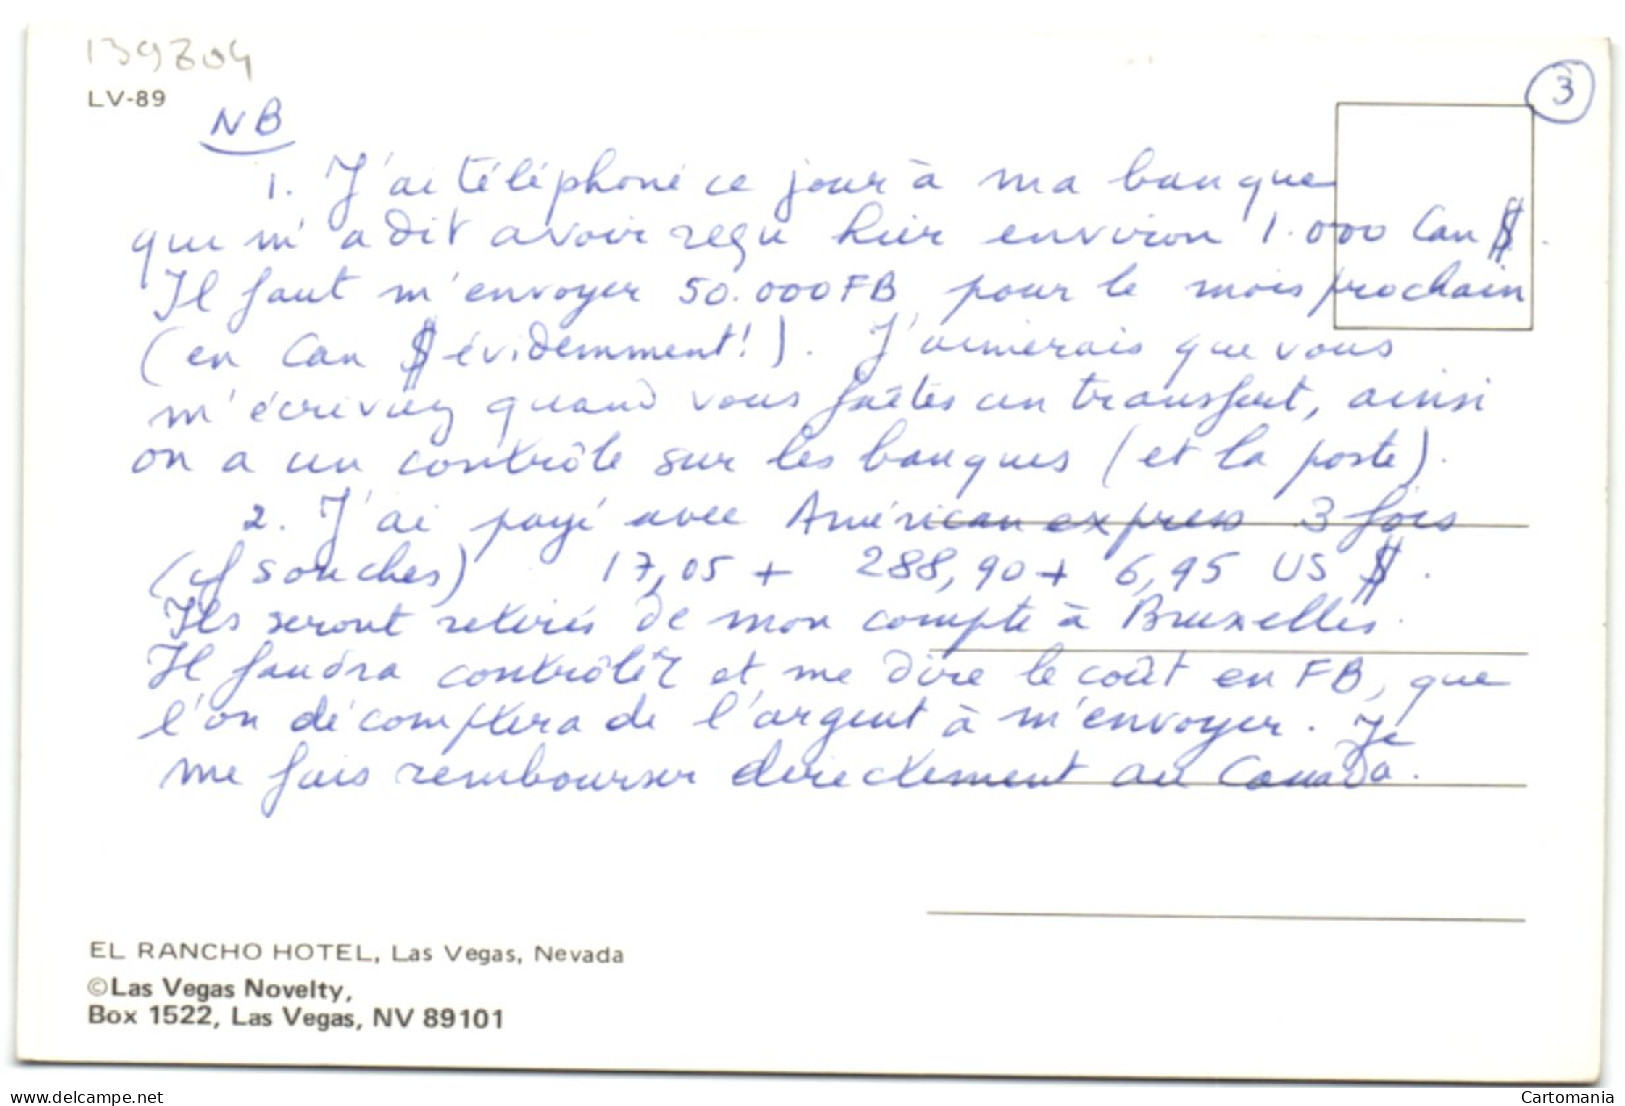 139804
LV-89
3
NB
1. J'ai téléphoné ce jour à ma banque
qui m'a dit avoir reçu hier environ 1.000 Can $.
Il faut m'envoyer 50.000 FB pour le mois prochain
(en Can $ évidemment!). J'aimerais que vous
m'écriviez quand vous faites un transfert, ainsi
on a un contrôle sur les banques (et la poste).
2. J'ai payé avec Américan express 3 fois
(cf souches) 17,05 + 288,90 + 6,95 US $.
Ils seront retirés de mon compte à Bruxelles.
Il faudra contrôler et me dire le coût en FB, que
l'on décomptera de l'argent à m'envoyer. Je
me fais rembourser directement au Canada.
EL RANCHO HOTEL, Las Vegas, Nevada
©Las Vegas Novelty,
Box 1522, Las Vegas, NV 89101
www.delcampe.net
Cartomania